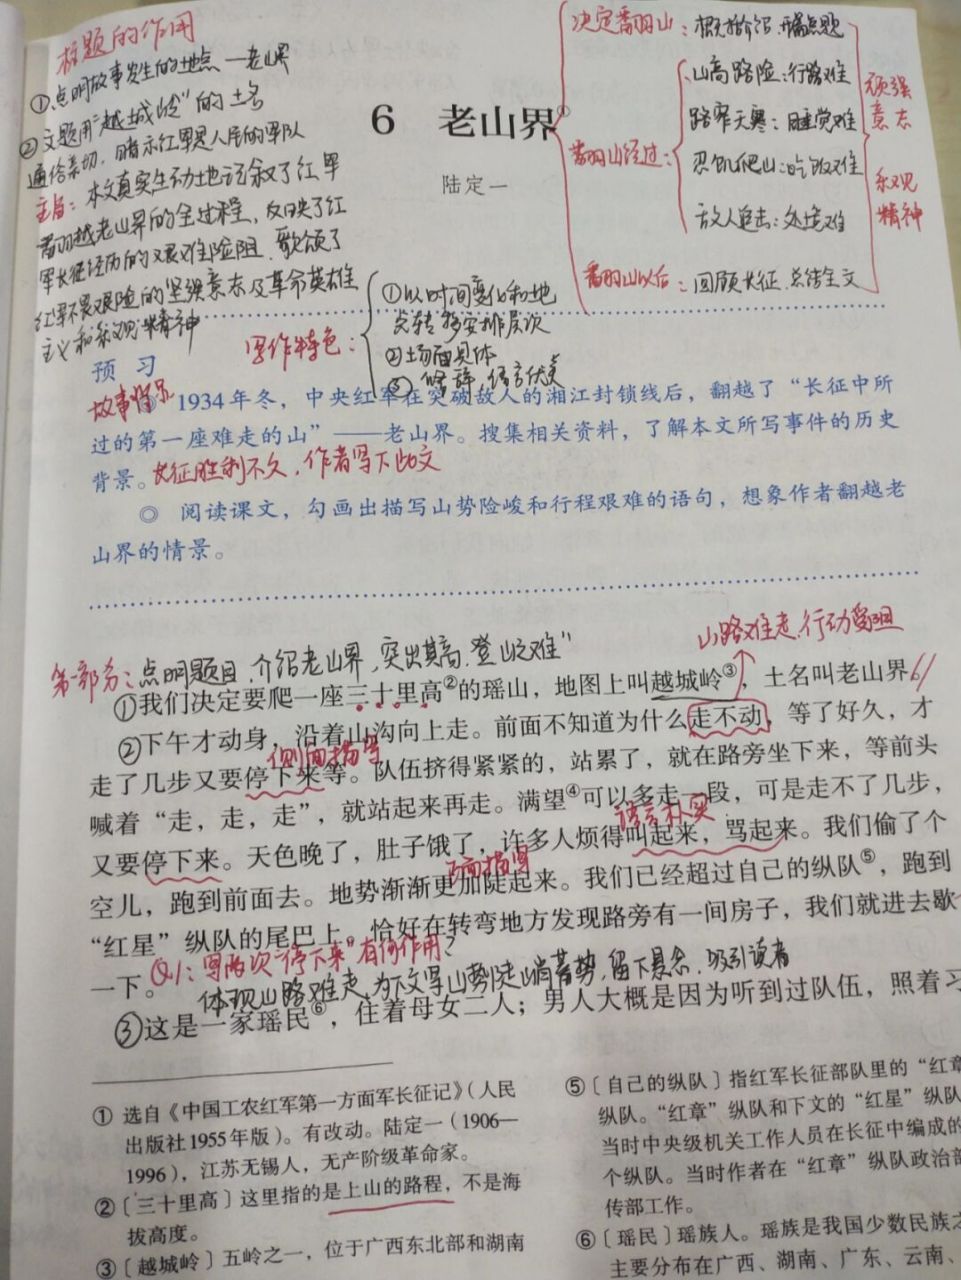 标题的作用
①点明故事发生的地点—老山界
②文题用“越城岭”的土名
通俗亲切，暗示红军是人民的军队
主旨：本文真实生动地记叙了红军
翻越老山界的全过程，反映了红
军长征经历的艰难险阻，歌颂了
红军不畏艰险的坚强意志及革命英雄
主义和乐观精神
6 老山界①
陆定一
决定翻山：相关介绍 开篇点题
翻山经过：
山高路险：行路难
路窄天寒：睡觉难
忍饥爬山：吃饭难
敌人追击：处境难
翻山以后：回顾长征 总结全文
顽强
意志
乐观
精神
写作特色：
①以时间变化和地
点转移安排层次
②场面具体
③修辞，语言优美
预 习
故事背景
◎ 1934年冬，中央红军在突破敌人的湘江封锁线后，翻越了“长征中所
过的第一座难走的山”——老山界。搜集相关资料，了解本文所写事件的历史
背景。长征胜利不久，作者写下此文
◎ 阅读课文，勾画出描写山势险峻和行程艰难的语句，想象作者翻越老
山界的情景。
山路难走，行动受阻
第一部分：点明题目，介绍老山界，突出其高，登山之难”
①我们决定要爬一座三十里高②的瑶山，地图上叫越城岭③，土名叫老山界。
②下午才动身，沿着山沟向上走。前面不知道为什么走不动，等了好久，才
侧面描写
走了几步又要停下来等。队伍挤得紧紧的，站累了，就在路旁坐下来，等前头
喊着“走，走，走”，就站起来再走。满望④可以多走一段，可是走不了几步，
语言朴实
又要停下来。天色晚了，肚子饿了，许多人烦得叫起来，骂起来。我们偷了个
面描写
空儿，跑到前面去。地势渐渐更加陡起来。我们已经超过自己的纵队⑤，跑到
“红星”纵队的尾巴上，恰好在转弯地方发现路旁有一间房子，我们就进去歇
一下。
Q1：写两次“停下来”有何作用？
体现山路难走，为下文写山势陡峭蓄势，留下悬念，吸引读者
③这是一家瑶民⑥，住着母女二人；男人大概是因为听到过队伍，照着习
① 选自《中国工农红军第一方面军长征记》（人民
出版社1955年版）。有改动。陆定一（1906—
1996），江苏无锡人，无产阶级革命家。
②〔三十里高〕这里指的是上山的路程，不是海
拔高度。
③〔越城岭〕五岭之一，位于广西东北部和湖南
⑤〔自己的纵队〕指红军长征部队里的“红章
纵队。“红章”纵队和下文的“红星”纵队
当时中央级机关工作人员在长征中编成的
个纵队。当时作者在“红章”纵队政治部
传部工作。
⑥〔瑶民〕瑶族人。瑶族是我国少数民族之
主要分布在广西、湖南、广东、云南、